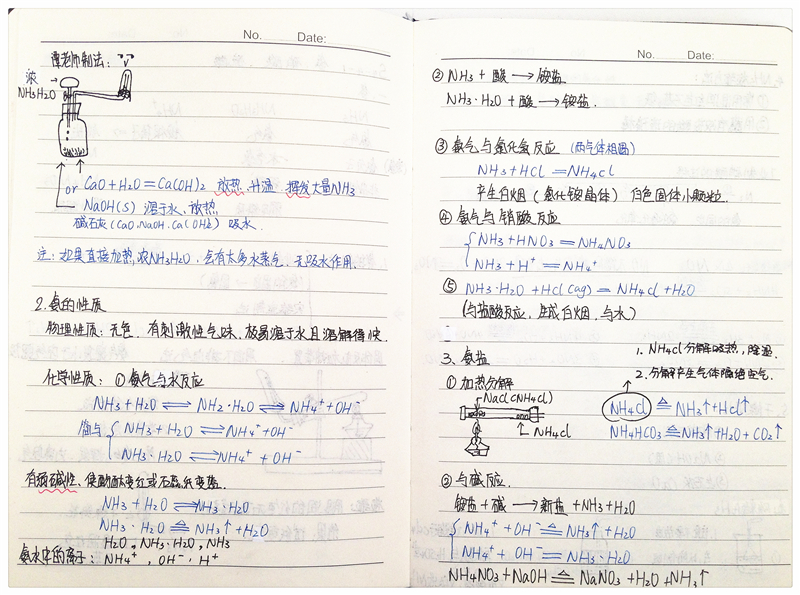 No. Date:
覃老师制法:
浓
NH3H2O
or CaO+H2O=Ca(OH)2 放热,升温,挥发大量NH3
NaOH(s) 溶于水,放热
碱石灰(CaO.NaOH.Ca(OH)2) 吸水.
注:如果直接加热,浓NH3H2O,含有太多水蒸气,无吸水作用.
2.氨的性质
物理性质:无色,有刺激性气味,极易溶于水且溶解得快.
化学性质: ①氨气与水反应
NH3+H2O⇌NH2·H2O⇌NH4⁺+OH⁻
NH3+H2O⇌NH4⁺+OH⁻
NH3+H2O⇌NH4⁺+OH⁻
有弱碱性,使酚酞变红或石蕊纸变蓝.
NH3+H2O⇌NH3·H2O
NH3·H2O≜NH3↑+H2O
H2O,NH3·H2O,NH3
氨水中的离子:NH4⁺,OH⁻,H⁺
No. Date:
②NH3+酸→铵盐
NH3·H2O+酸→铵盐.
③氨气与氯化氢反应 (两气体相遇)
NH3+HCl=NH4Cl
产生白烟(氯化铵晶体) 白色固体小颗粒.
④氨气与硝酸反应
NH3+HNO3=NH4NO3
NH3+H⁺=NH4⁺
⑤NH3·H2O+HCl(ag)=NH4Cl+H2O
(与盐酸反应,生成白烟,与水)
3、氨盐
1.NH4Cl分解吸热,降温.
①加热分解
2.分解产生气体隔绝空气.
NaCl(NH4Cl)
NH4Cl
NH4Cl≜NH3↑+HCl↑
NH4HCO3≜NH3↑+H2O+CO2↑
②与碱反应.
铵盐+碱→新盐+NH3+H2O
NH4⁺+OH⁻≜NH3↑+H2O
NH4⁺+OH⁻=NH3·H2O
NH4NO3+NaOH≜NaNO3+H2O+NH3↑